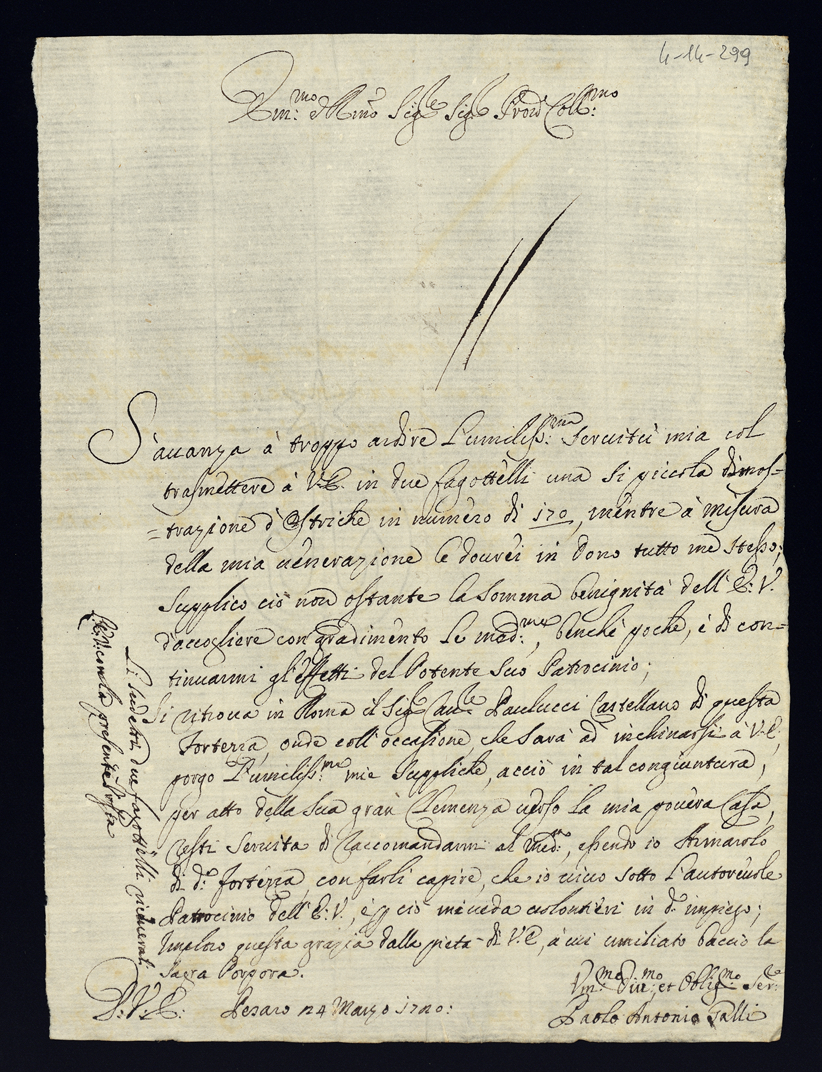 4-14-299
Em:mo e Rmo Sigre Sigre Proñ Coll:mo
S'auanza à troppo ardire l'umiliss:ma seruitù mia col
trasmettere à V.E. in due fagottelli una si piccola dimos=
=trazione d'Ostriche in numero di 170, mentre à misura
della mia uenerazione le dourei in dono tutto me stesso;
supplico ciò non ostante la somma benignità dell'E:V.
d'accogliere con gradimento le med:me, benche poche, e di con=
tinuarmi gl'effetti del Potente suo Patrocinio;
Si ritroua in Roma il Sigre Caure Paulucci Castellano di questa
Fortezza, onde coll'occasione, che sarà ad inchinarsi à V.E,
porgo l'umiliss:me mie suppliche, acciò in tal congiuntura,
per atto della sua gran Clemenza uerso la mia pouera Casa,
resti seruita di raccomandarmi al med:mo, essendo io Armarolo
di da: fortezza, con farli capire, che io uiuo sotto l'autoreuole
Patrocinio dell'E:V., e p ciò mi ueda uolontieri in do: impiego;
Imploro questa grazia dalla pietà di V.E, à cui umiliato baccio la
sagra Porpora.
D:V:E: Pesaro 24 Marzo 1720:
Vm:mo Diu:mo et Oblig:mo Serre
Paolo Antonio Galli
Li sudetti due fagottelli riceuerà
l'E:V: con la presente Posta